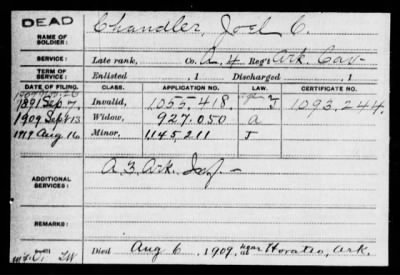 DEAD
NAME OF SOLDIER: Chandler, Joel C.
SERVICE: Late rank, Co. A, 4 Reg't Ark. Cav-
TERM OF SERVICE: Enlisted , 1 Discharged , 1
DATE OF FILING. CLASS. APPLICATION NO. CERTIFICATE NO.
1891 Sep 7, Invalid, 1055.418. J 1093.244.
1909 Sept 13 Widow, 927.050 a
1919 Aug 16 Minor, 1145,211 J
ADDITIONAL SERVICES: A 3 Ark. Inf. -
REMARKS:
Died Aug 6, 1909, near at Horatio, Ark.